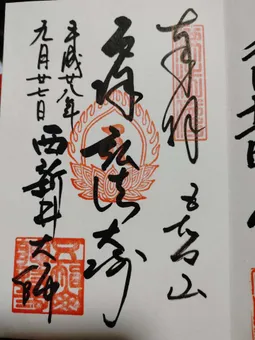 奉拝
五智山
厄除
弘法大師
平成廿八年
元月廿七日
西新井大師